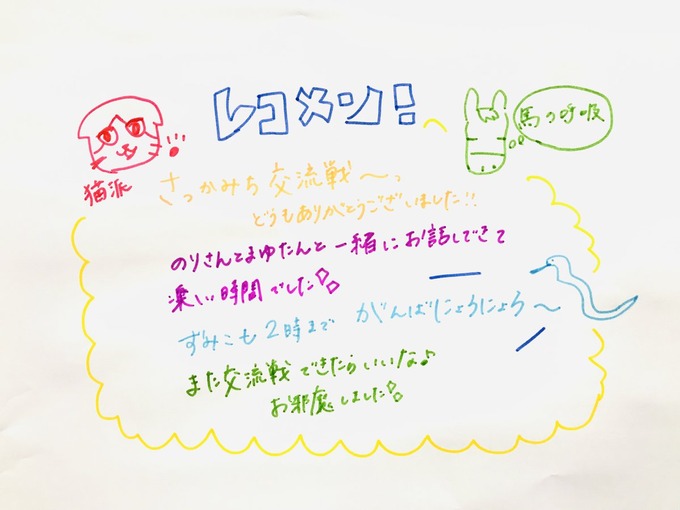 レコメン!
猫派
馬の呼吸
さっかみち交流戦〜っ
どうもありがとうございました!!
のりさんとまゆたんと一緒にお話しできて
楽しい時間でした
ずみこも2時まで がんばにょろにょろ〜
また交流戦できたらいいな♪
お邪魔しました